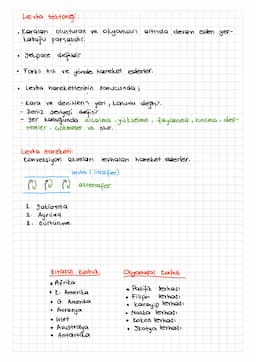 Levha tektoniği:
• Karaları oluşturan ve okyanusların altında devam eden yer-
kabuğu parçasıdır.
• Yekpare değildir
• Farklı hız ve yönde hareket ederler.
• Levha hareketlerinin sonucunda;
- Kara ve denizlerin yeri, konumu değişir.
- Deniz seviyesi değişir
- Yer kabuğunda alçalma, yükselme, faylanma, kırılma, dep-
remler, çökmeler vs. olur.
Levha Hareketi:
Konveksiyon akımları levhaları hareket ettirirler.
levha (litosfer)
astenosfer
1. Yaklaşma
2. Ayrılma
3. Sürtünme
Kıtasal Kabuk
• Afrika
• K. Amerika
• G. Amerika
• Avrasya
• Hint
• Avustralya
• Antarktika
Okyanusal Kabuk
• Pasifik levhası
• Filipin levhası
• Karayip levhası
• Nazka levhası
• Kokos levhası
• Skotya levhası